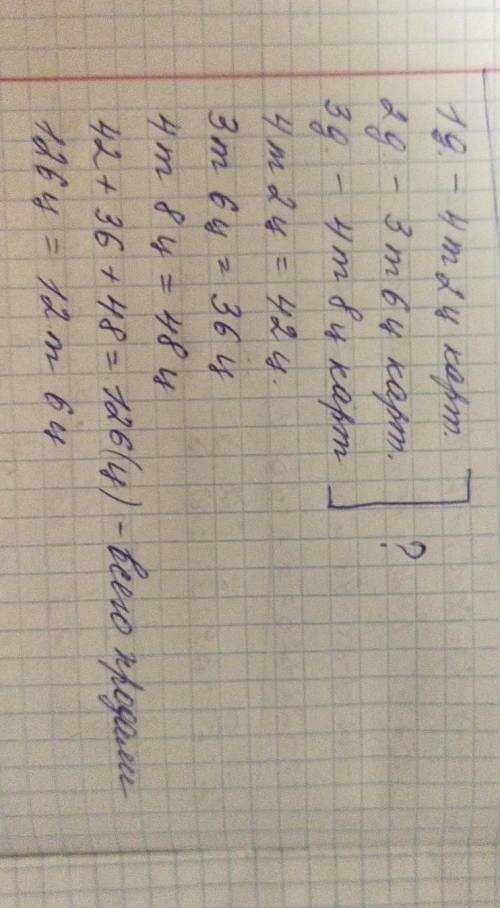 1д. - 4т 2ц карт.
2д - 3т 6ц карт. ?
3д. - 4т 8ц карт
4т 2ц = 42ц.
3т 6ц = 36ц
4т 8ц = 48ц
42 + 36 + 48 = 126(ц) - всего продали
126ц = 12т 6ц